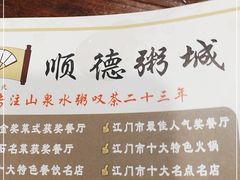 顺德粥城
专注山泉水粥叹茶二十三年
金奖菜式获奖餐厅
江门市最佳人气奖餐厅
百名菜获奖餐厅
江门市十大特色火锅
十大特色餐饮名店
江门市十大名点名店